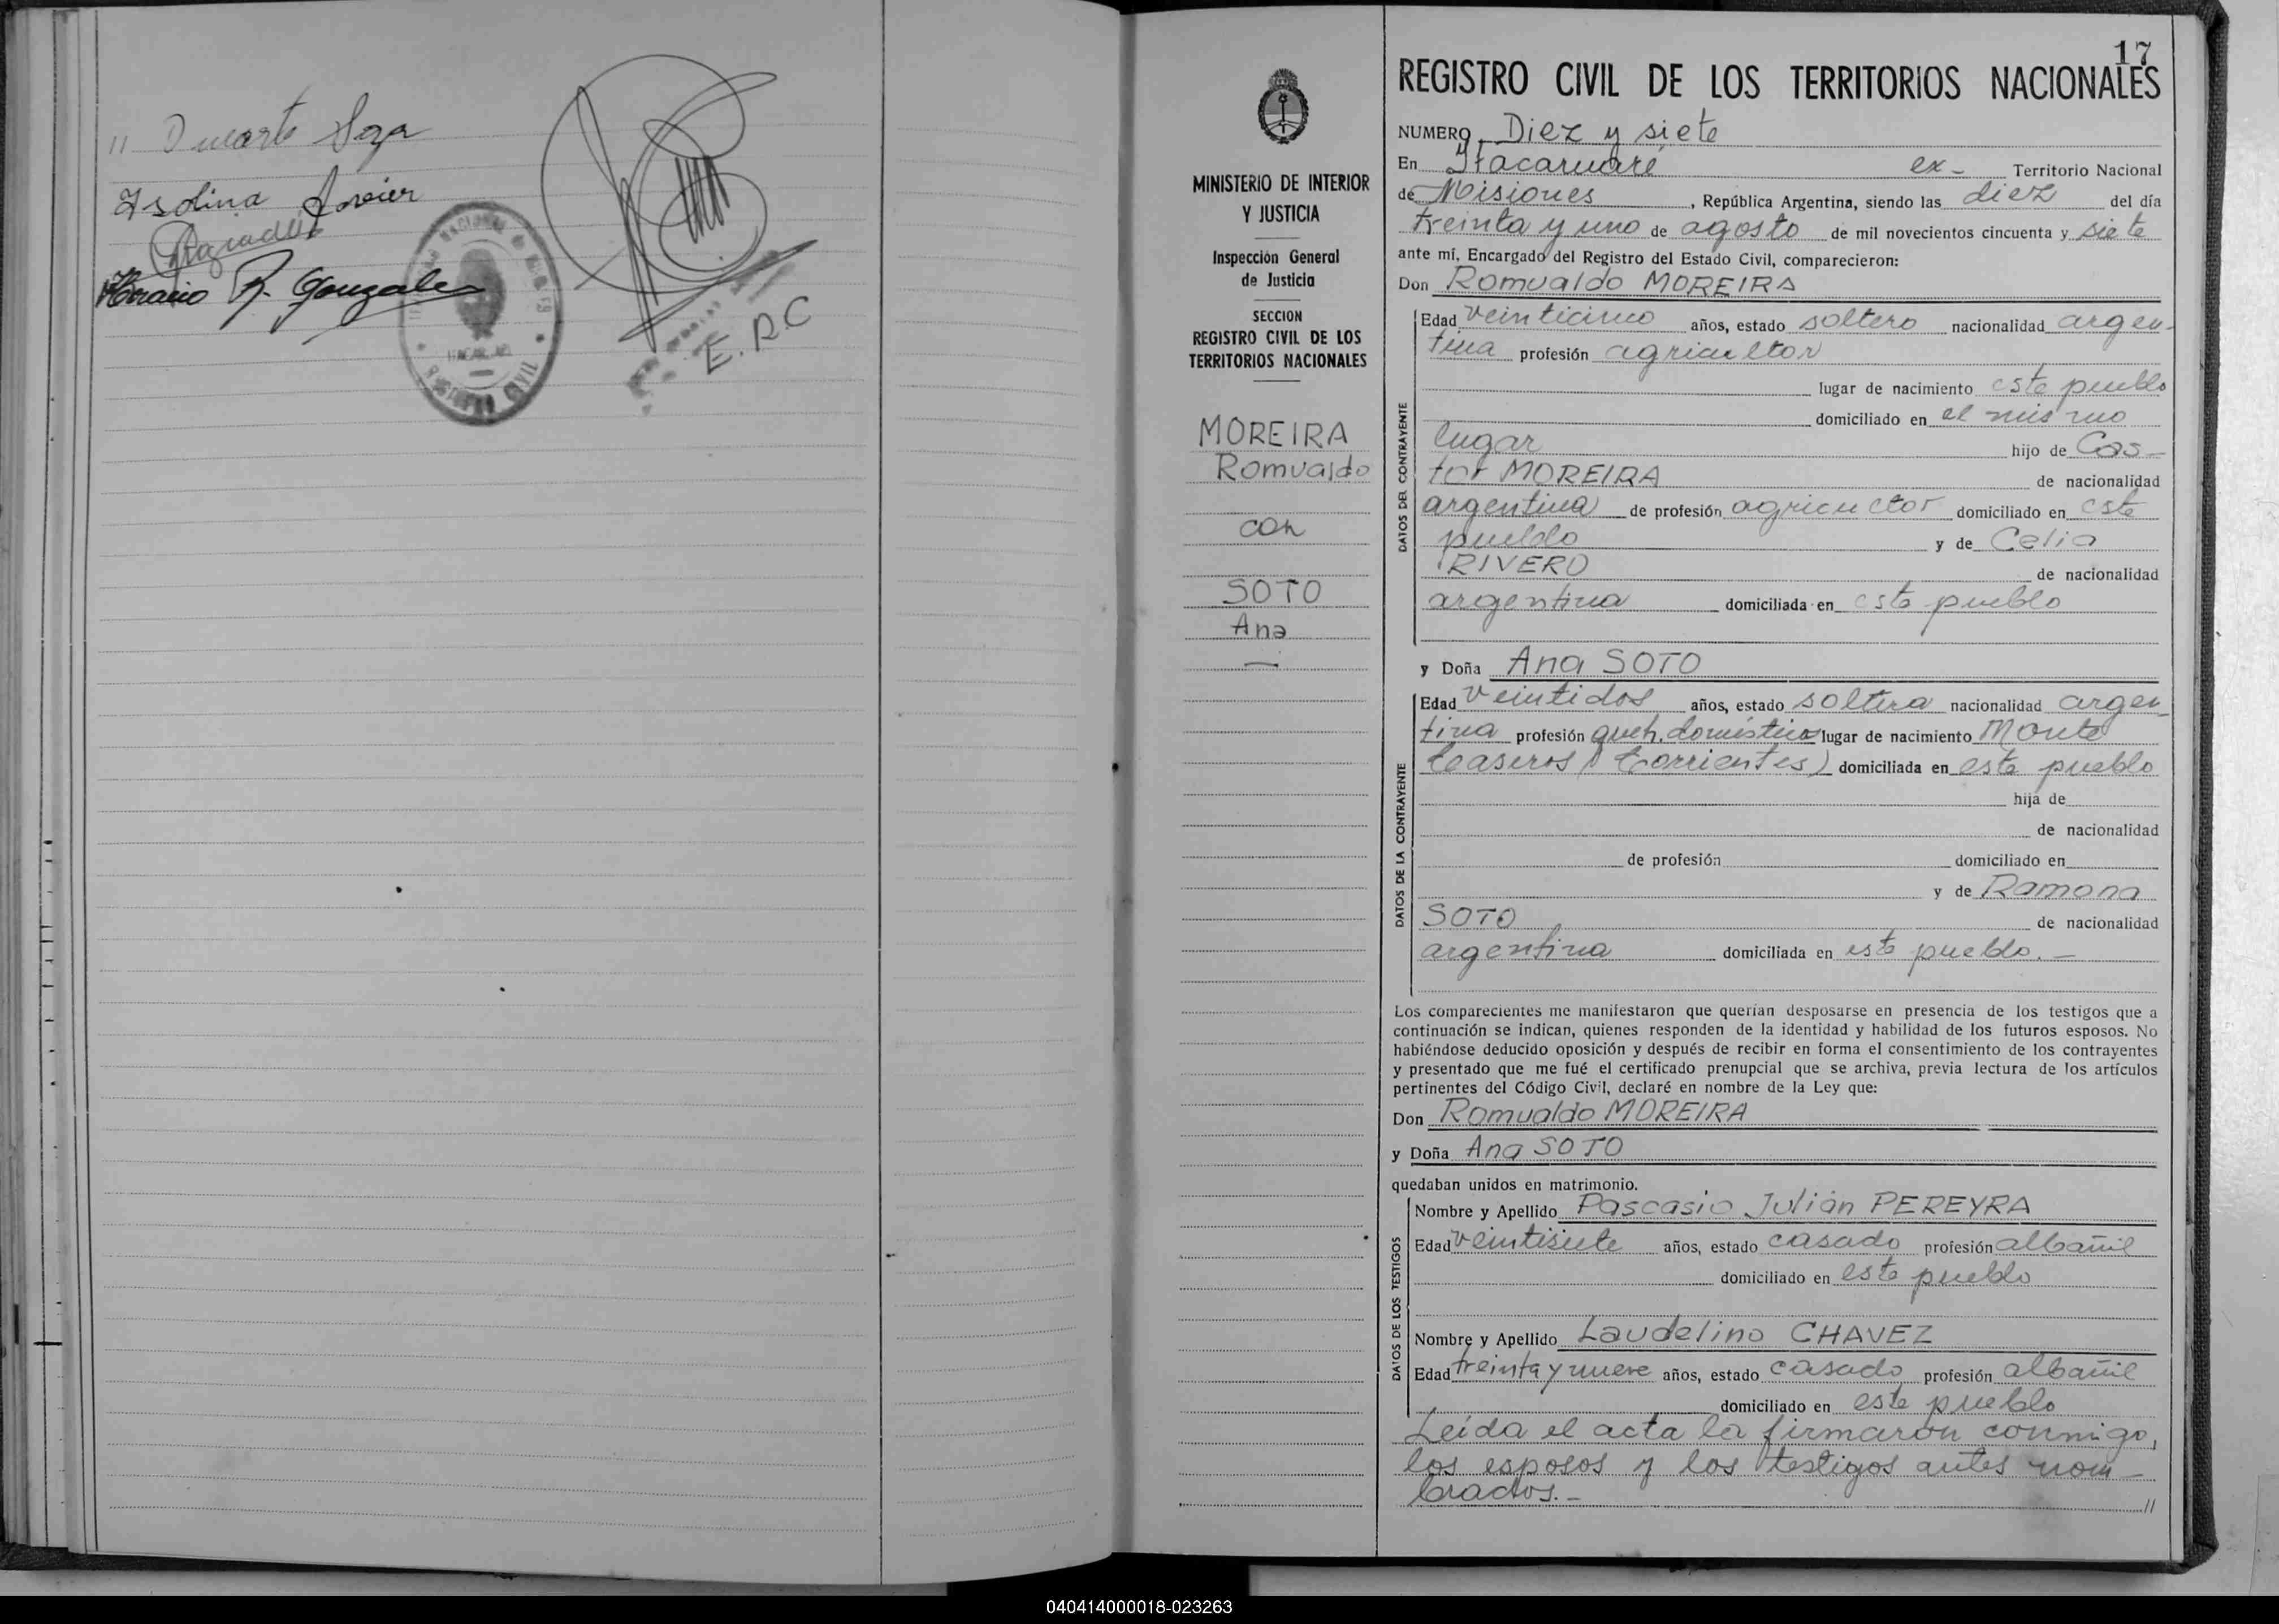 Duarte
Isolina Javier
Horacio R. Gonzalez
REGISTRO CIVIL
E. R C
17
REGISTRO CIVIL DE LOS TERRITORIOS NACIONALES
MINISTERIO DE INTERIOR
Y JUSTICIA
Inspección General
de Justicia
SECCION
REGISTRO CIVIL DE LOS
TERRITORIOS NACIONALES
MOREIRA
Romualdo
con
SOTO
Ana
NUMERO Diez y siete
En Itacaruaré ex- Territorio Nacional
de Misiones, República Argentina, siendo las diez del día
treinta y uno de agosto de mil novecientos cincuenta y siete
ante mí, Encargado del Registro del Estado Civil, comparecieron:
Don Romualdo MOREIRA
DATOS DEL CONTRAYENTE
Edad años, estado soltero nacionalidad argen-
tina profesión agricultor
lugar de nacimiento este pueblo
domiciliado en el mismo
lugar hijo de Cas-
tor MOREIRA de nacionalidad
argentina de profesión agricultor domiciliado en este
pueblo y de Celia
RIVERO de nacionalidad
argentina domiciliada en este pueblo
y Doña Ana SOTO
DATOS DE LA CONTRAYENTE
Edad veintidos años, estado soltera nacionalidad argen-
tina profesión queh. domésticos lugar de nacimiento Monte
Caseros (Corrientes) domiciliada en este pueblo
hija de
de nacionalidad
de profesión domiciliado en
y de Ramona
SOTO de nacionalidad
argentina domiciliada en este pueblo.-
Los comparecientes me manifestaron que querían desposarse en presencia de los testigos que a
continuación se indican, quienes responden de la identidad y habilidad de los futuros esposos. No
habiéndose deducido oposición y después de recibir en forma el consentimiento de los contrayentes
y presentado que me fué el certificado prenupcial que se archiva, previa lectura de los artículos
pertinentes del Código Civil, declaré en nombre de la Ley que:
Don Romualdo MOREIRA
y Doña Ana SOTO
quedaban unidos en matrimonio.
DATOS DE LOS TESTIGOS
Nombre y Apellido Pascasio Julián PEREYRA
Edad veintisiete años, estado casado profesión albañil
domiciliado en este pueblo
Nombre y Apellido Laudelino CHAVEZ
Edad treinta y nueve años, estado casado profesión albañil
domiciliado en este pueblo
Leída el acta la firmaron conmigo,
los esposos y los testigos antes nom-
brados.-
//
040414000018-023263